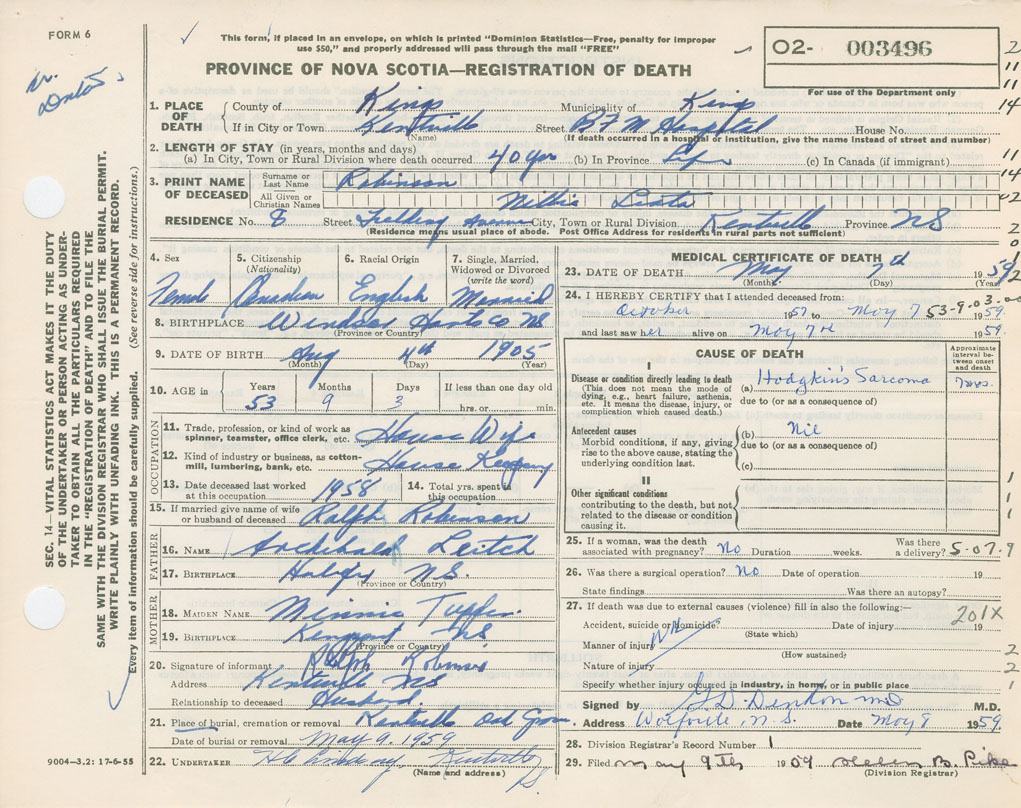 FORM 6
This form, if placed in an envelope, on which is printed "Dominion Statistics—Free, penalty for improper
use $50," and properly addressed will pass through the mail "FREE"
O2- 003496
For use of the Department only
PROVINCE OF NOVA SCOTIA—REGISTRATION OF DEATH
SEC. 14—VITAL STATISTICS ACT MAKES IT THE DUTY
OF THE UNDERTAKER OR PERSON ACTING AS UNDER-
TAKER TO OBTAIN ALL THE PARTICULARS REQUIRED
IN THE "REGISTRATION OF DEATH" AND TO FILE THE
SAME WITH THE DIVISION REGISTRAR WHO SHALL ISSUE THE BURIAL PERMIT.
WRITE PLAINLY WITH UNFADING INK. THIS IS A PERMANENT RECORD.
Every item of information should be carefully supplied. (See reverse side for instructions.)
1. PLACE OF DEATH County of Kings Municipality of Kings
If in City or Town Kentville Street B F M Hospital House No.
(If death occurred in a hospital or institution, give the name instead of street and number)
2. LENGTH OF STAY (in years, months and days)
(a) In City, Town or Rural Division where death occurred 40 yrs (b) In Province Life (c) In Canada (if immigrant)
3. PRINT NAME OF DECEASED Surname or Last Name Robinson
All Given or Christian Names Leata
RESIDENCE No. 8 Street Avenue City, Town or Rural Division Kentville Province NS
(Residence means usual place of abode. Post Office Address for residents in rural parts not sufficient)
4. Sex Female
5. Citizenship (Nationality) Canadian
6. Racial Origin English
7. Single, Married, Widowed or Divorced (write the word) Married
8. BIRTHPLACE Windsor Hants Co NS
(Province or Country)
9. DATE OF BIRTH Aug 4th 1905
(Month) (Day) (Year)
10. AGE in Years 53 Months 9 Days 3 If less than one day old hrs. or min.
OCCUPATION
11. Trade, profession, or kind of work as spinner, teamster, office clerk, etc. House Wife
12. Kind of industry or business, as cotton-mill, lumbering, bank, etc. House Keeping
13. Date deceased last worked at this occupation 1958
14. Total yrs. spent in this occupation
15. If married give name of wife or husband of deceased Ralph Robinson
FATHER
16. NAME Archibald Leitch
17. BIRTHPLACE Halifax NS.
(Province or Country)
MOTHER
18. MAIDEN NAME Minnie Tupper
19. BIRTHPLACE NS
(Province or Country)
20. Signature of informant Ralph Robinson
Address Kentville NS
Relationship to deceased Husband
21. Place of burial, cremation or removal Kentville Oak Grove
Date of burial or removal May 9, 1959
22. UNDERTAKER Kentville
(Name and address) NS
9004—3.2: 17-6-55
MEDICAL CERTIFICATE OF DEATH
23. DATE OF DEATH May 7th 1959
(Month) (Day) (Year)
24. I HEREBY CERTIFY that I attended deceased from:
October 1957 to May 7 1959
53-9.03.00
and last saw her alive on May 7th 1959
CAUSE OF DEATH
Approximate interval between onset and death
I
Disease or condition directly leading to death
(This does not mean the mode of dying, e.g., heart failure, asthenia, etc. It means the disease, injury, or complication which caused death.)
(a) Hodgkin's Sarcoma
due to (or as a consequence of)
Antecedent causes
Morbid conditions, if any, giving rise to the above cause, stating the underlying condition last.
(b) Nil
due to (or as a consequence of)
(c)
II
Other significant conditions contributing to the death, but not related to the disease or condition causing it.
25. If a woman, was the death associated with pregnancy? No Duration weeks. Was there a delivery?
5-07.9
26. Was there a surgical operation? No Date of operation 19
State findings Was there an autopsy?
27. If death was due to external causes (violence) fill in also the following:—
201X
Accident, suicide or homicide? Date of injury 19
(State which)
Manner of injury
(How sustained)
Nature of injury
Specify whether injury occurred in industry, in home, or in public place
Signed by G. D. Denton MD M.D.
Address Wolfville, N.S. Date May 8 1959.
28. Division Registrar's Record Number 1
29. Filed May 9th 1959 Helen B. Pike
(Division Registrar)